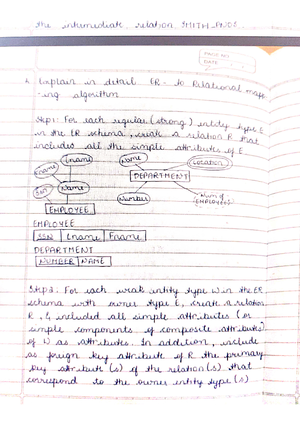 the intermediate relation, SMITH_PNOS
PAGE NO.
DATE
4. Explain in detail ER- to Relational mapp
-ing algorithm
Step1: For each regular (strong) entity type E
in the ER schema, creat a relation R that
includes all the simple attributes of E.
Lname
Name
Location
Fname
DEPARTMENT
SSN
Name
Number
Num of
EMPLOYEES
EMPLOYEE
EMPLOYEE
SSN Lname Fname
DEPARTMENT
NUMBER NAME
Step2: For each weak entity type W in the ER
schema with owner type E, create a relation
R, & included all simple attributes (or
simple components of composite attributes)
of W as attributes. In addition, include
as foreign key attribute of R the primary
key attribute(s) of the relation(s) that
correspond to the owner entity type(s)